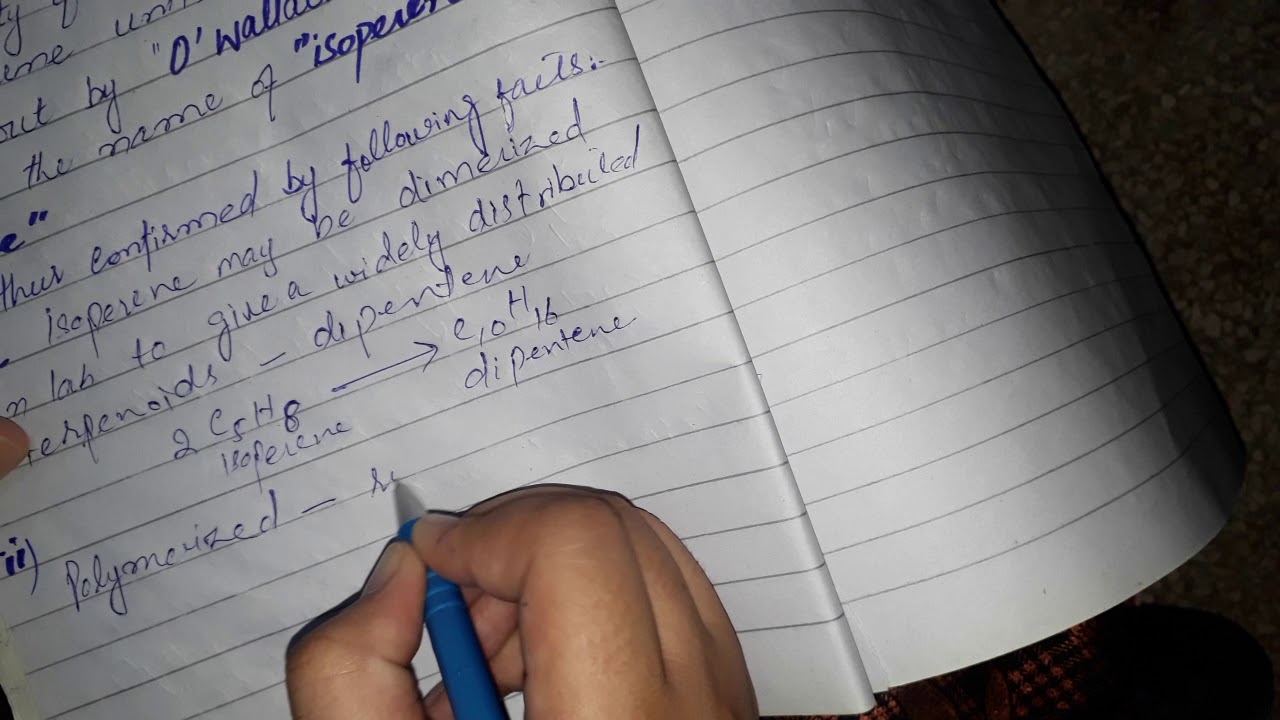 ty of
eme uni
out by "O'Walla
the name of "isoperen
e"
thur confirmed by following facts:-
isoperene may be dimerized
n lab to give a widely distributed
terpenoids - dipentene
2 C5H8 ⟶ C10H16
isoperene dipentene
ii) Polymerized -